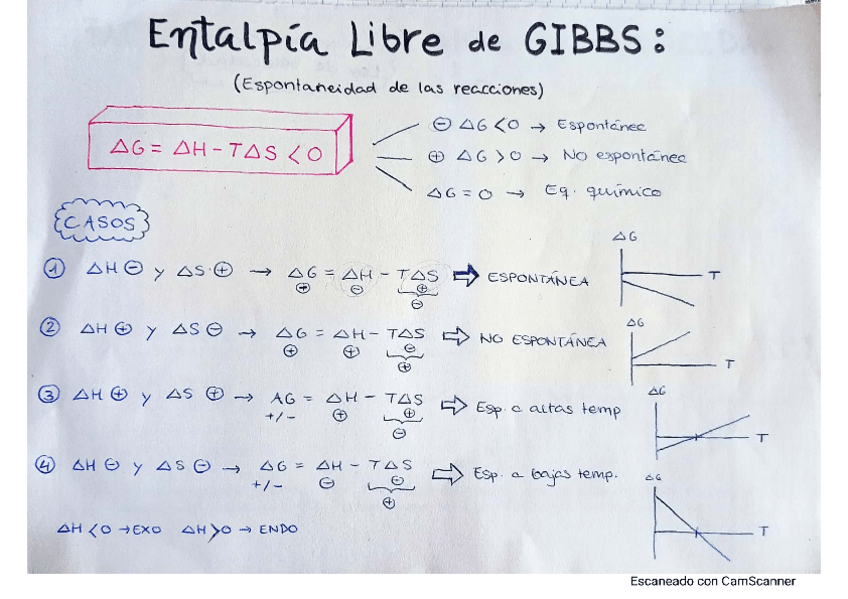 Entalpía Libre de GIBBS:
(Espontaneidad de las reacciones)
△G = △H - T△S < 0
⊖ △G < 0 → Espontánec
⊕ △G > 0 → No espontánec
△G = 0 → Eq. químico
CASOS
① △H ⊖ y △S ⊕ → △G = △H - T△S ⇨ ESPONTÁNEA
⊕ ⊖ ⊕
⊖
△G
T
② △H ⊕ y △S ⊖ → △G = △H - T△S ⇨ NO ESPONTÁNEA
⊕ ⊕ ⊖
⊕
△G
T
③ △H ⊕ y △S ⊕ → AG = △H - T△S ⇨ Esp. a altas temp
+/- ⊕ ⊕
⊖
△G
T
④ △H ⊖ y △S ⊖ → △G = △H - T△S ⇨ Esp. a bajas temp.
+/- ⊖ ⊖
⊕
△G
T
△H < 0 → EXO △H > 0 → ENDO
Escaneado con CamScanner